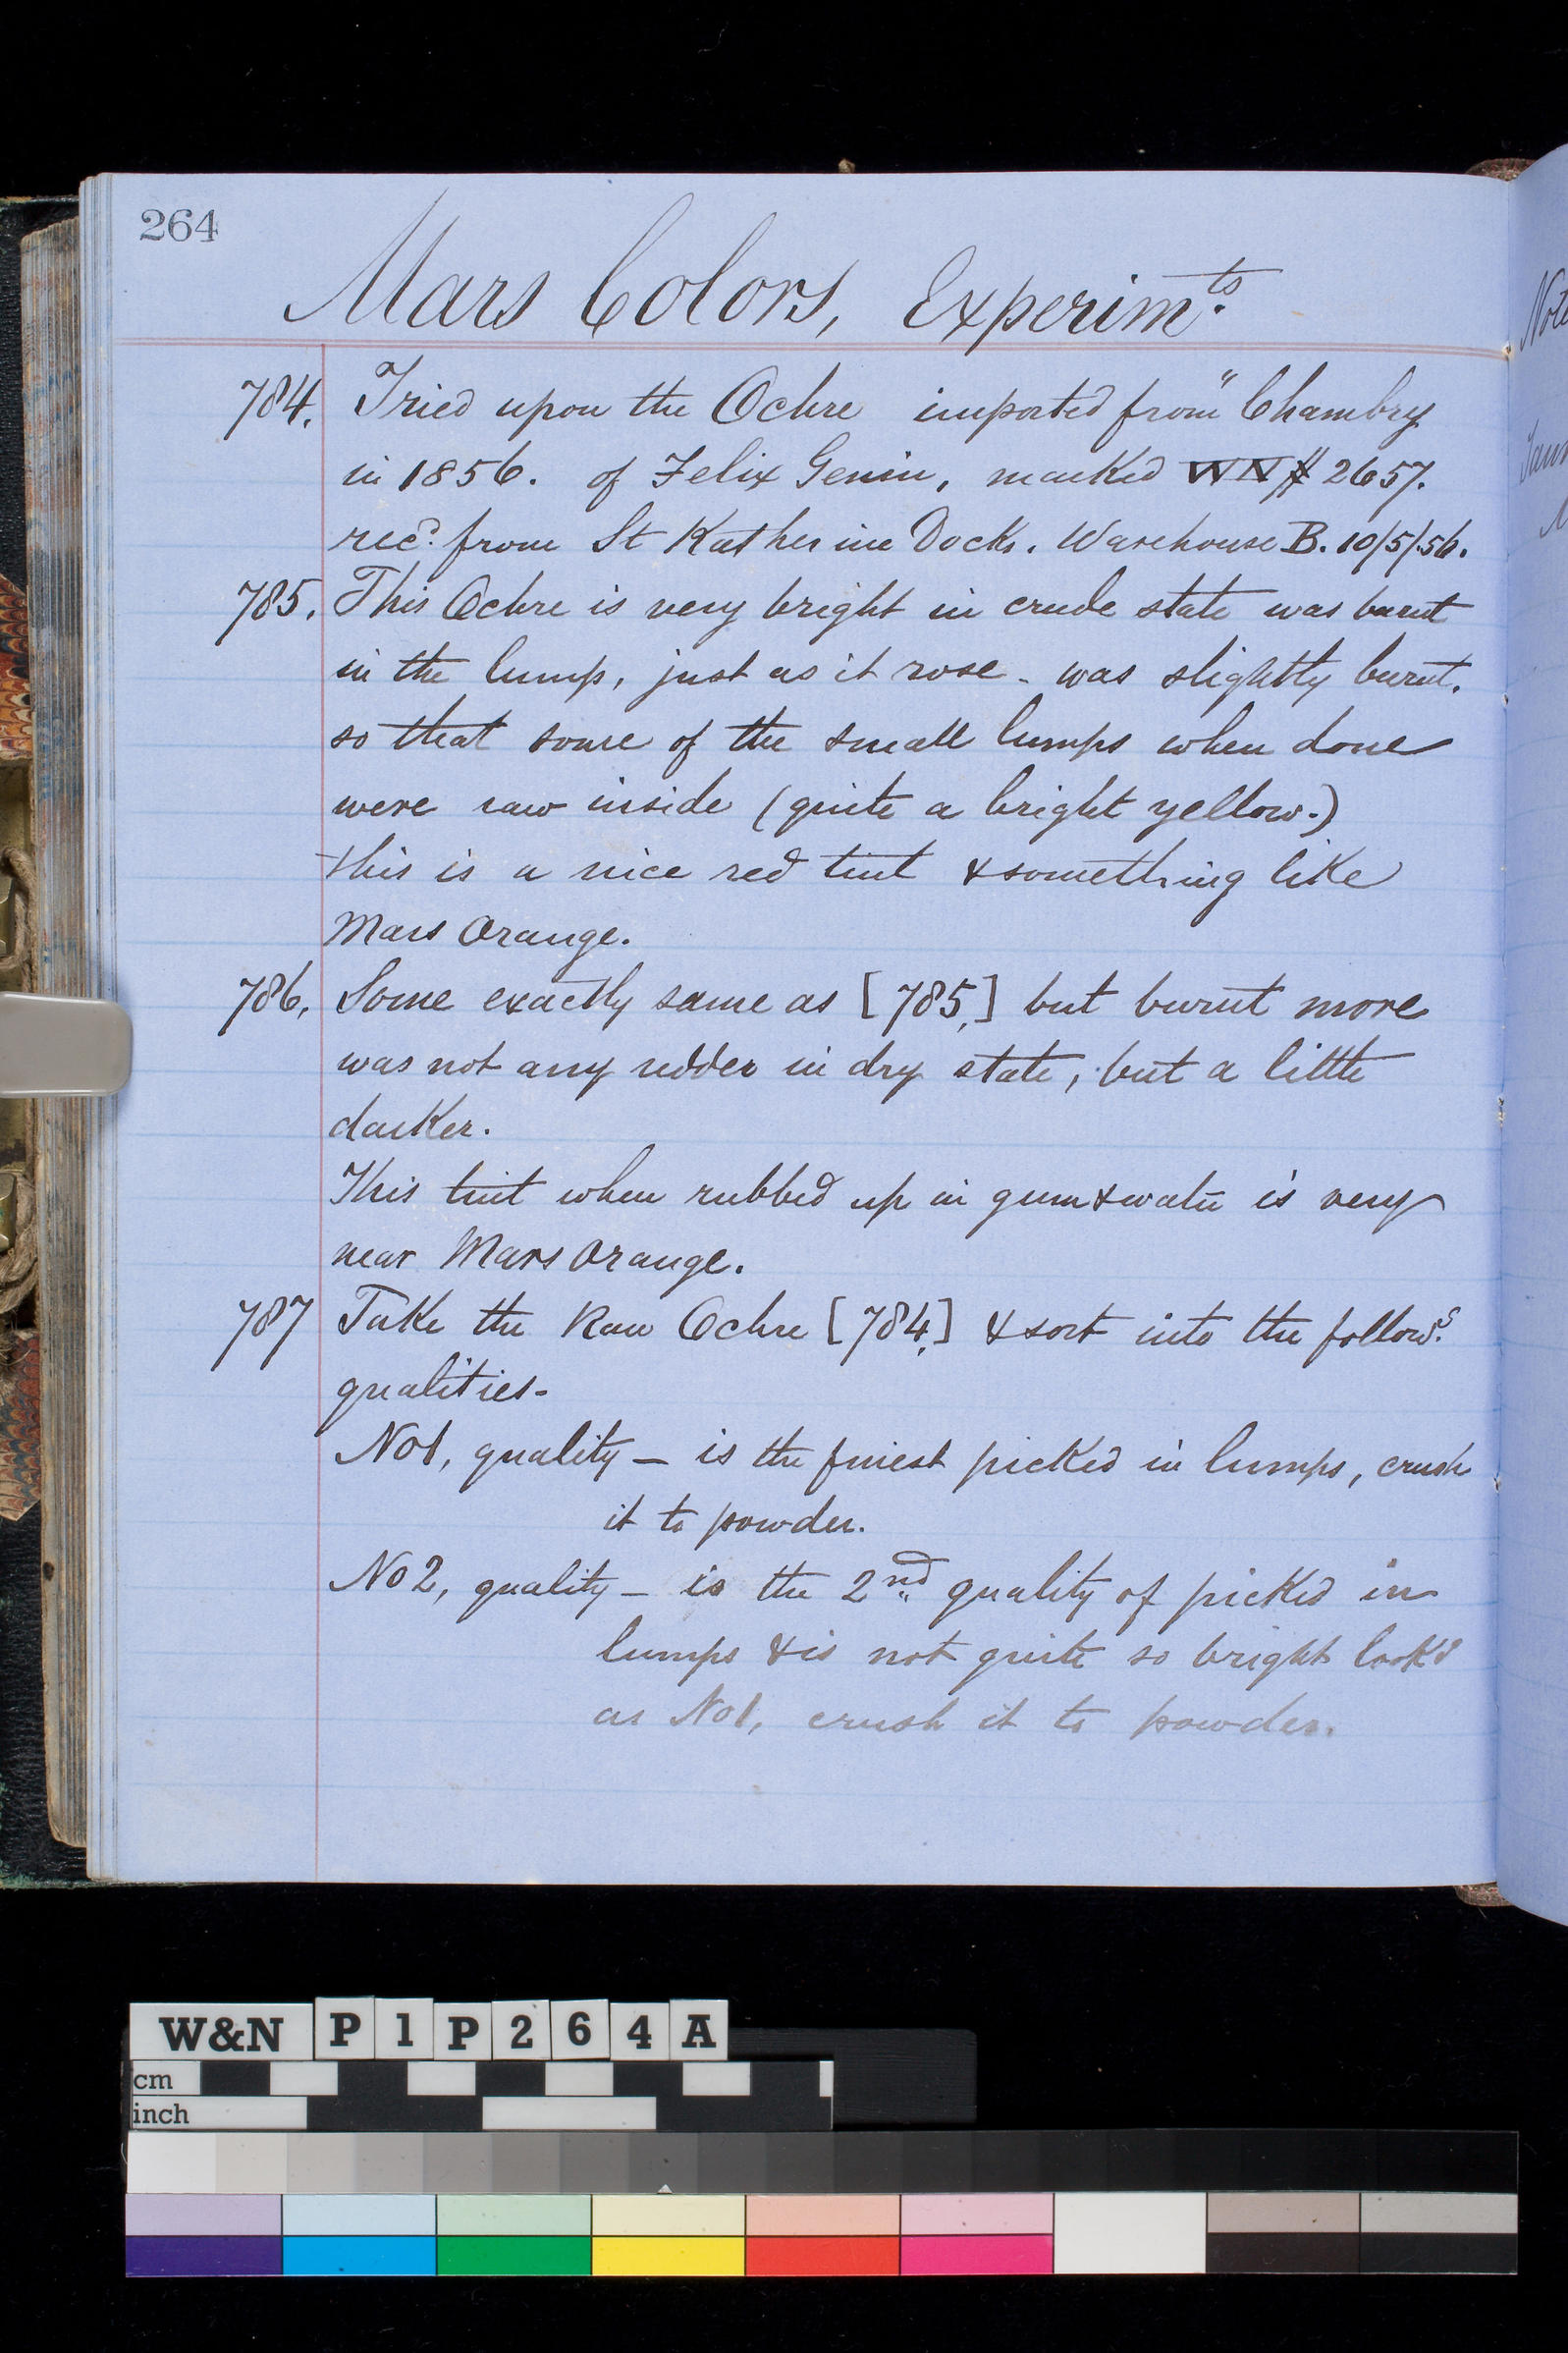 264
Mars Colors, Experimts.
784. Tried upon the Ochre imported from "Chambry
in 1856. of Felix Genin, marked WN # 2657.
recd. from St Katherine Docks. Warehouse B. 10/5/56.
785. This Ochre is very bright in crude state was burnt
in the lump, just as it rose - was slightly burnt.
so that some of the small lumps when done
were raw inside (quite a bright yellow.)
this is a nice red tint & something like
Mars Orange.
786. Some exactly same as [785,] but burnt more
was not any redder in dry state, but a little
darker.
This tint when rubbed up in gum & water is very
near Mars Orange.
787 Take the Raw Ochre [784,] & sort into the follows.
qualities-
No1, quality — is the finest picked in lumps, crush
it to powder.
No2, quality — is the 2nd quality of picked in
lumps & is not quite so bright look'd
as No1, crush it to powder.
Note
W&N P1P264A
cm
inch